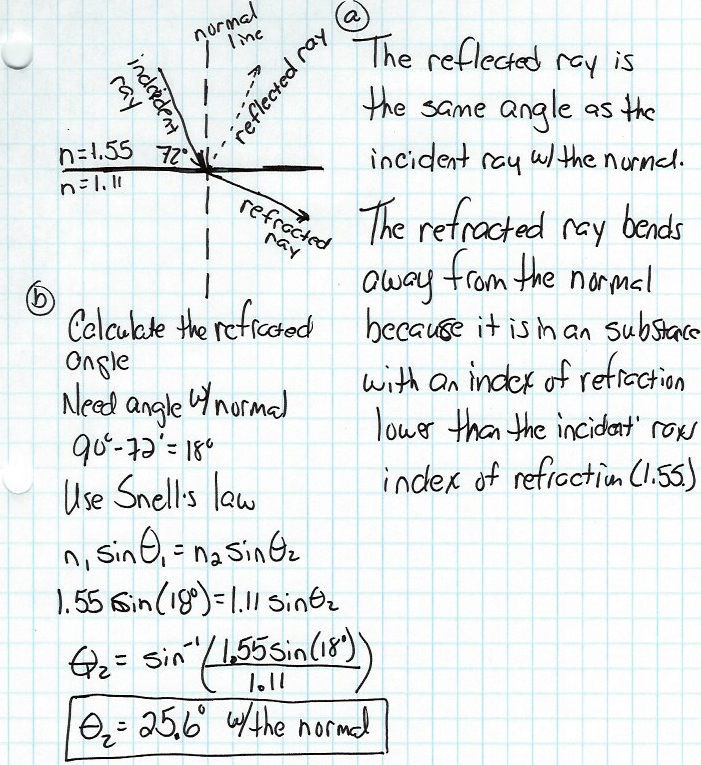 normal
line
incident
ray
reflected ray
n=1.55 72°
n=1.11
refracted
ray
ⓐ
The reflected ray is
the same angle as the
incident ray w/the normal.
The refracted ray bends
away from the normal
because it is in an substance
with an index of refraction
lower than the incident rays
index of refraction (1.55)
ⓑ
Calculate the refracted
angle
Need angle w/normal
90°-72°=18°
Use Snell's law
n₁ sinθ₁ = n₂ sinθ₂
1.55 sin(18°)=1.11 sinθ₂
θ₂ = sin⁻¹(1.55sin(18°)/1.11)
θ₂ = 25.6° w/the normal